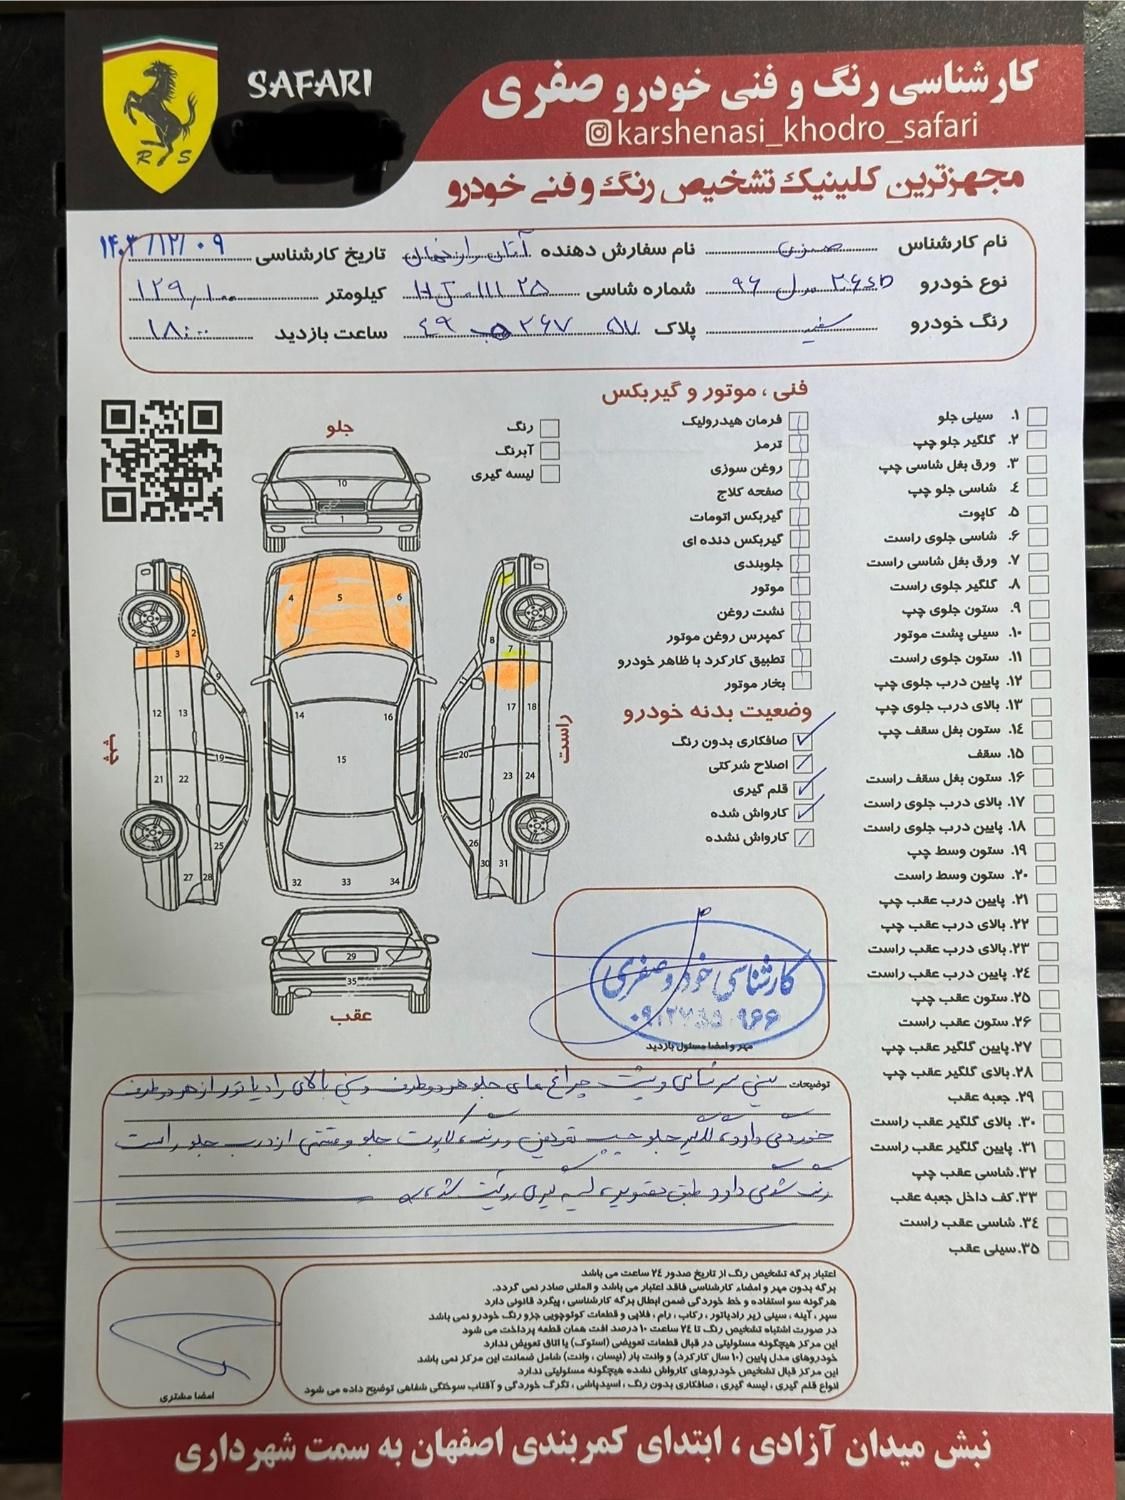 SAFARI
R S
کارشناسی رنگ و فنی خودرو صفری
karshenasi_khodro_safari
مجهزترین کلینیک تشخیص رنگ و فنی خودرو
نام کارشناس صفری نام سفارش دهنده آقای تاریخ کارشناسی ۱۴۰۳/۱۲/۰۹
نوع خودرو مدل ۹۶ شماره شاسی کیلومتر ۱۲۹,۱۰۰
رنگ خودرو سفید پلاک ساعت بازدید ۱۸:۰۰
فنی ، موتور و گیربکس
فرمان هیدرولیک
ترمز
روغن سوزی
صفحه کلاچ
گیربکس اتومات
گیربکس دنده ای
جلوبندی
موتور
نشت روغن
کمپرس روغن موتور
تطبیق کارکرد با ظاهر خودرو
بخار موتور
وضعیت بدنه خودرو
صافکاری بدون رنگ
اصلاح شرکتی
قلم گیری
کارواش شده
کارواش نشده
۱. سینی جلو
۲. گلگیر جلو چپ
۳. ورق بغل شاسی چپ
۴. شاسی جلو چپ
۵. کاپوت
۶. شاسی جلوی راست
۷. ورق بغل شاسی راست
۸. گلگیر جلوی راست
۹. ستون جلوی چپ
۱۰. سینی پشت موتور
۱۱. ستون جلوی راست
۱۲. پایین درب جلوی چپ
۱۳. بالای درب جلوی چپ
۱۴. ستون بغل سقف چپ
۱۵. سقف
۱۶. ستون بغل سقف راست
۱۷. بالای درب جلوی راست
۱۸. پایین درب جلوی راست
۱۹. ستون وسط چپ
۲۰. ستون وسط راست
۲۱. پایین درب عقب چپ
۲۲. بالای درب عقب چپ
۲۳. بالای درب عقب راست
۲۴. پایین درب عقب راست
۲۵. ستون عقب چپ
۲۶. ستون عقب راست
۲۷. پایین گلگیر عقب چپ
۲۸. بالای گلگیر عقب چپ
۲۹. جعبه عقب
۳۰. بالای گلگیر عقب راست
۳۱. پایین گلگیر عقب راست
۳۲. شاسی عقب چپ
۳۳. کف داخل جعبه عقب
۳۴. شاسی عقب راست
۳۵. سینی عقب
رنگ
آبرنگ
لیسه گیری
جلو
10
1
4 5 6
2
3
8
7
9
11
12 13
14 16
17 18
15
19
20
21 22
23 24
25
26
27 28
30 31
32 33 34
29
35
چپ
راست
عقب
کارشناسی خودرو صفری
مهر و امضا مسئول بازدید
توضیحات سینی سر شاسی و پشت چراغ های جلو هر دو طرف و سینی بالای رادیاتور از هر دو طرف
خوردگی دارد، گلگیر جلو چپ تعویض و رنگ، کاپوت جلو و قسمتی از درب جلو راست
رنگ شدگی دارد طبق تصویر، لیسه گیری رویت شد،
اعتبار برگه تشخیص رنگ از تاریخ صدور ۲۴ ساعت می باشد
برگه بدون مهر و امضاء کارشناسی فاقد اعتبار می باشد و المثنی صادر نمی گردد.
هرگونه سو استفاده و خط خوردگی ضمن ابطال برگه کارشناسی ، پیگرد قانونی دارد
سپر، آینه ، سینی زیر رادیاتور ، رکاب ، رام ، فلاپی و قطعات کولوچویی جزو رنگ خودرو نمی باشد
در صورت اشتباه تشخیص رنگ تا ۲۴ ساعت ۱۰ درصد افت همان قطعه پرداخت می شود
این مرکز هیچگونه مسئولیتی در قبال قطعات تعویضی (استوک) یا اتاق تعویض ندارد
خودروهای مدل پایین (۱۰ سال کارکرد) و وانت بار (نیسان ، وانت) شامل ضمانت این مرکز نمی باشد
این مرکز قبال تشخیص خودروهای کارواش نشده هیچگونه مسئولیتی ندارد
انواع قلم گیری ، لیسه گیری ، صافکاری بدون رنگ ، اسیدپاشی ، تگرگ خوردگی و آفتاب سوختگی شفاهی توضیح داده می شود
امضا مشتری
نبش میدان آزادی ، ابتدای کمربندی اصفهان به سمت شهرداری